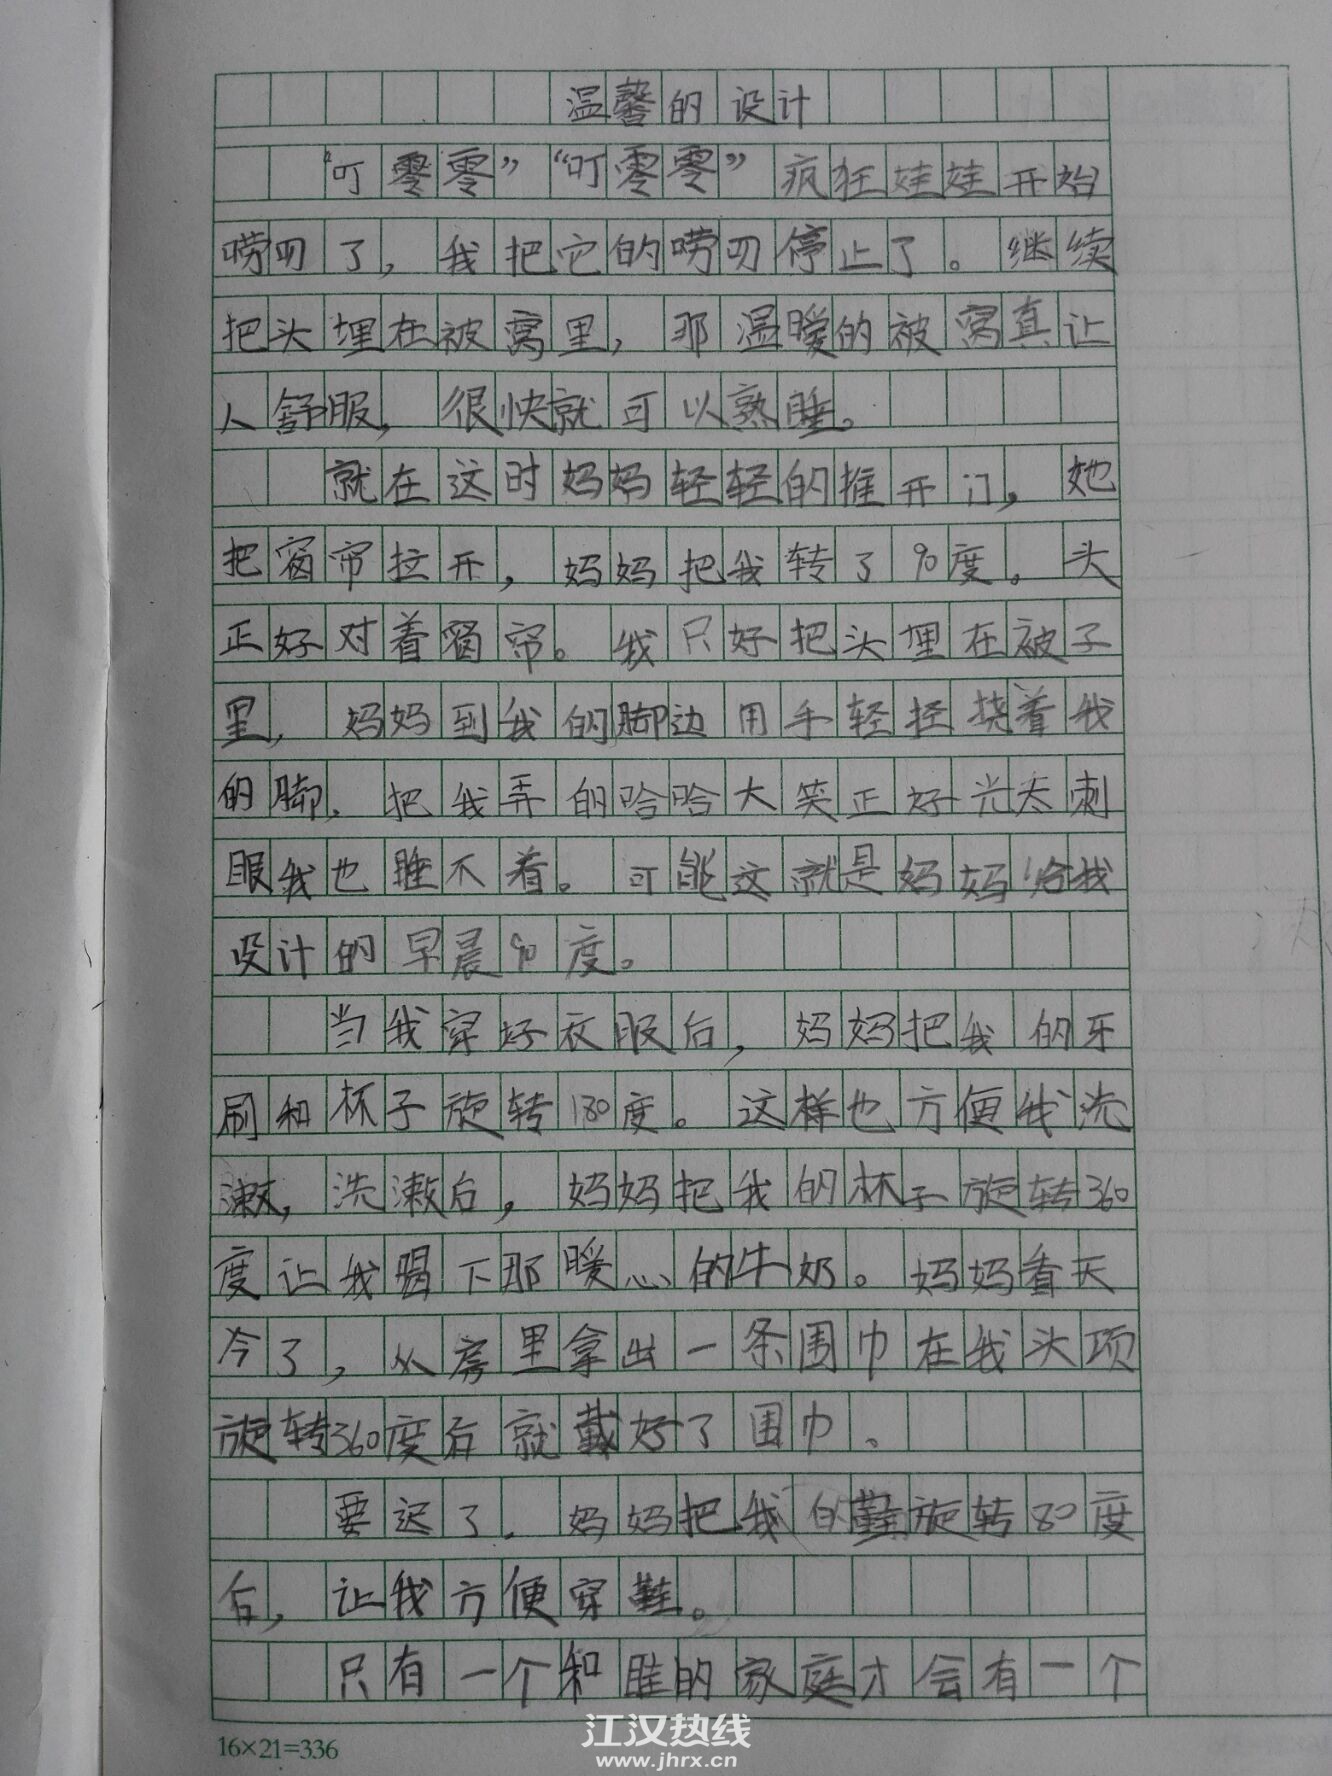 温馨的设计
“叮零零”“叮零零”疯狂娃娃开始
唠叨了，我把它的唠叨停止了。继续
把头埋在被窝里，那温暖的被窝真让
人舒服，很快就可以熟睡。
就在这时妈妈轻轻的推开门，她
把窗帘拉开，妈妈把我转了90度。头
正好对着窗帘。我只好把头埋在被子
里，妈妈到我的脚边用手轻轻挠着我
的脚，把我弄的哈哈大笑正好光太刺
眼我也睡不着。可能这就是妈妈给我
设计的早晨90度。
当我穿好衣服后，妈妈把我的牙
刷和杯子旋转180度。这样也方便我洗
漱，洗漱后，妈妈把我的杯子旋转360
度让我喝下那暖心的牛奶。妈妈看天
冷了，从房里拿出一条围巾在我头项
旋转360度后就戴好了围巾、
要迟了，妈妈把我的鞋旋转80度
后，让我方便穿鞋。
只有一个和睦的家庭才会有一个
16×21=336
江汉热线
www.jhrx.cn